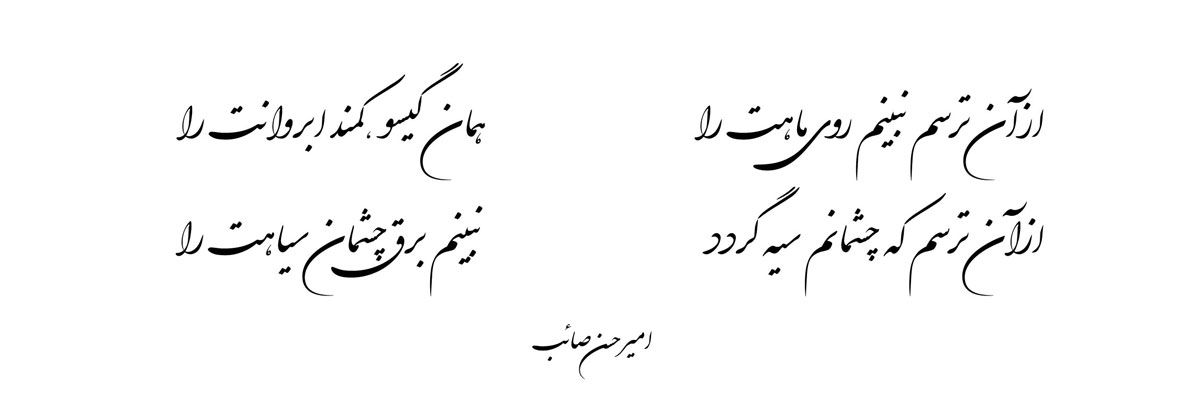 از آن ترسم نبینم روی ماهت را همان گیسو کمند ابروانت را
از آن ترسم که چشمانم سیه گردد نبینم برق چشمان سیاهت را
امیرحسن صائب